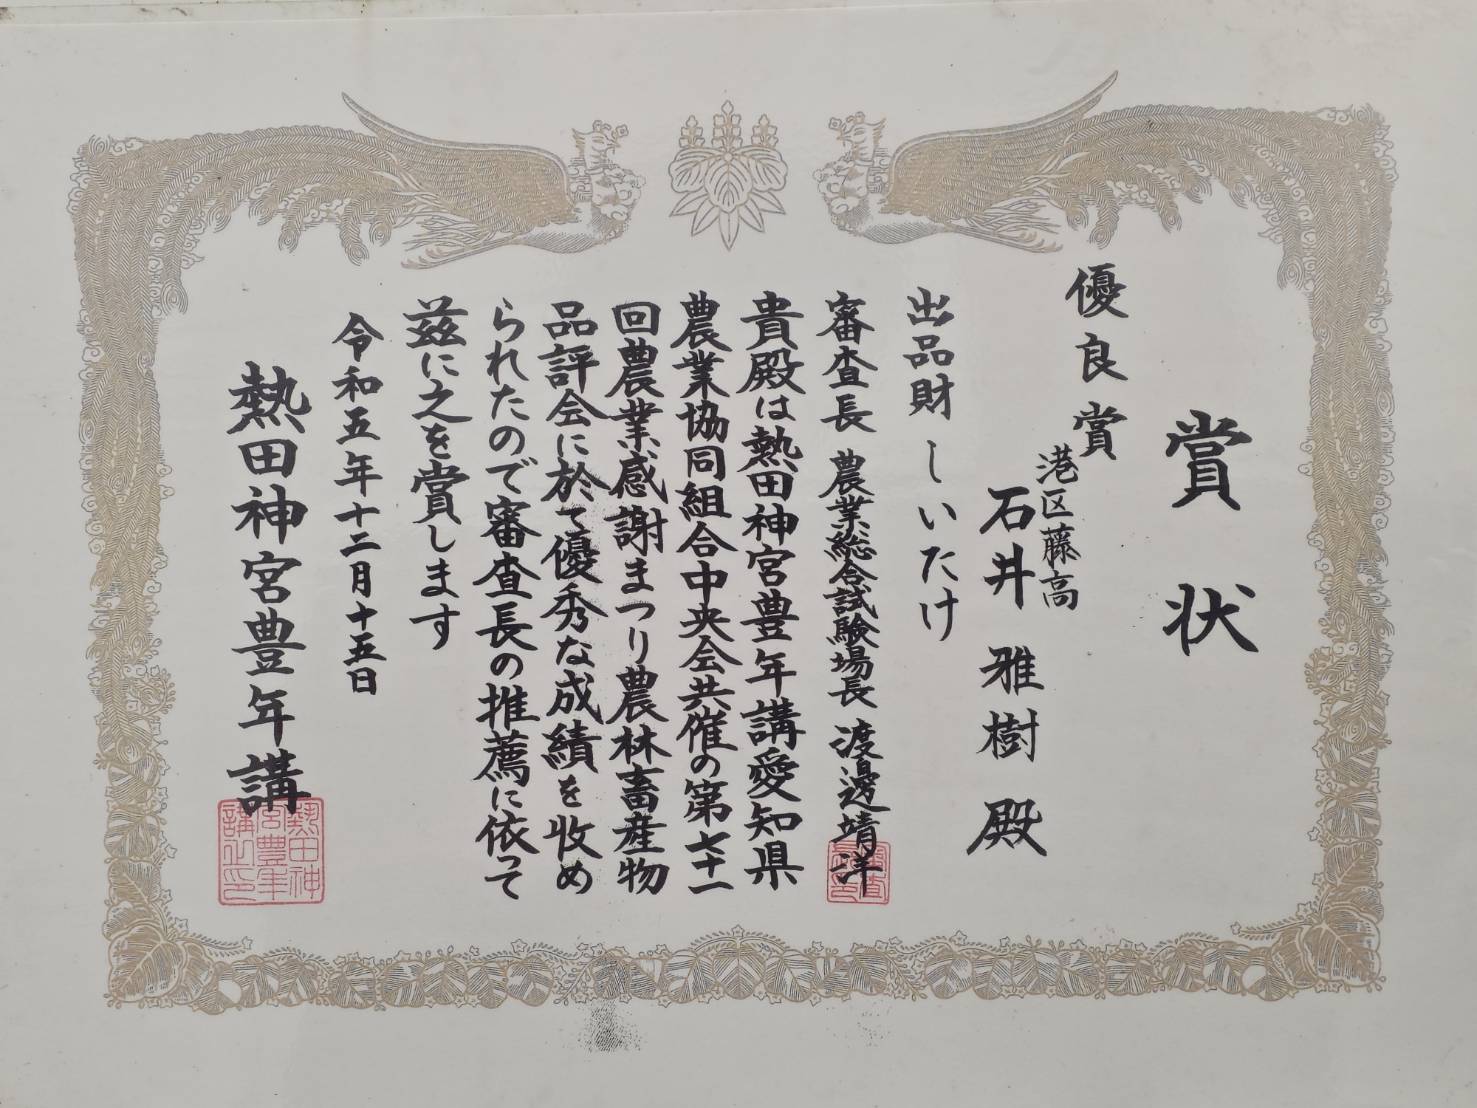 賞状
優良賞
港区藤高
石井雅樹殿
出品財 しいたけ
審査長 農業総合試験場長 渡邊靖洋
貴殿は熱田神宮豊年講愛知県
農業協同組合中央会共催の第七十一
回農業感謝まつり農林畜産物
品評会に於て優秀な成績を収め
られたので審査長の推薦に依って
茲に之を賞します
令和五年十二月十五日
熱田神宮豊年講
熱田神
宮豊年
講之印